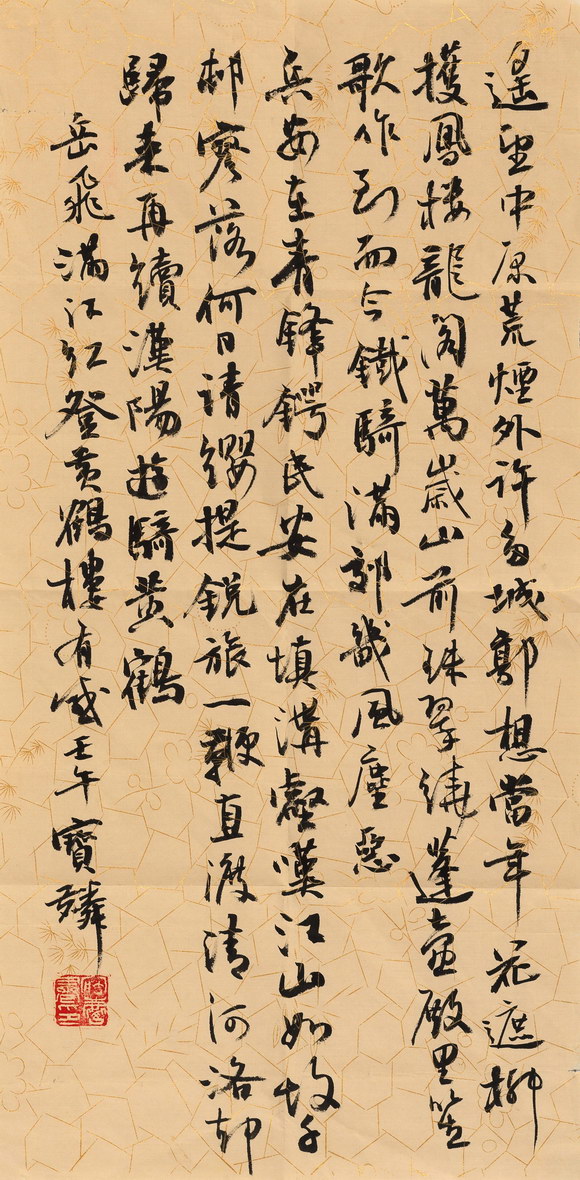 遙望中原荒煙外許多城郭想當年花遮柳
護鳳樓龍閣萬歲山前珠翠繞蓬壺殿里笙
歌作到而今鐵騎滿郊畿風塵惡
兵安在膏鋒鍔民安在填溝壑嘆江山如故千
邨寥落何日請纓提銳旅一鞭直渡清河洛却
歸來再續漢陽遊騎黃鶴
岳飛滿江紅登黃鶴樓有感壬午寶麟